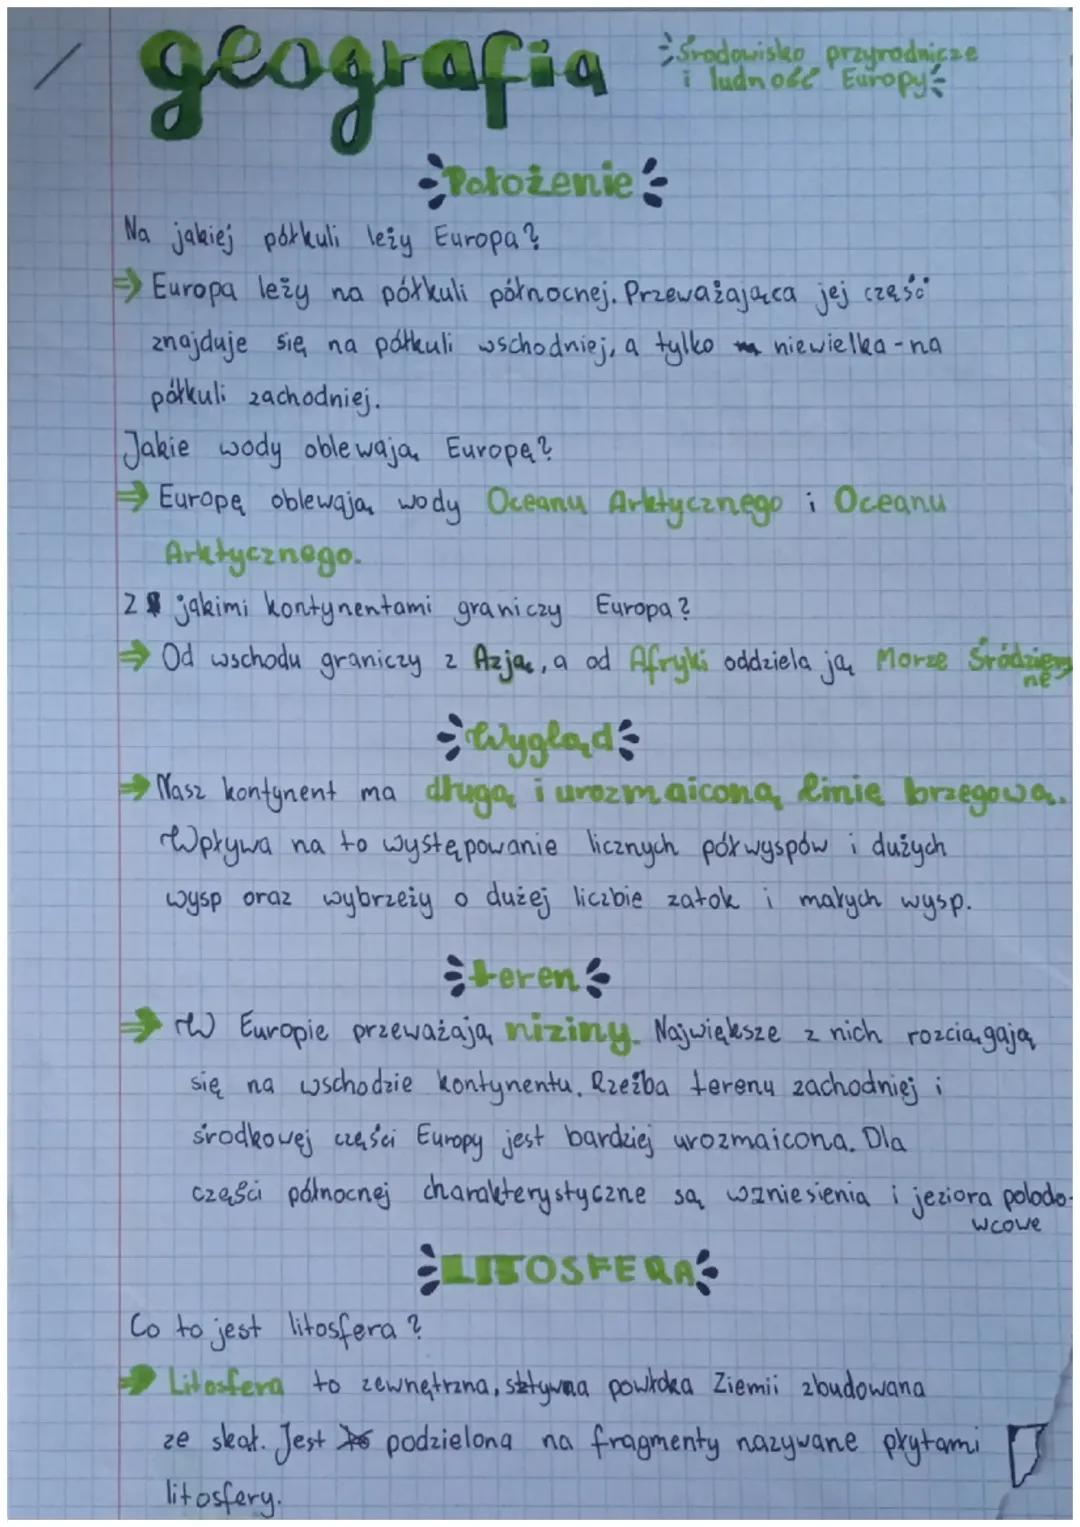 geografia
Środowisko przyrodnicze
i ludność Europy
Położenie
Na jakiej półkuli leży Europa?
⇒ Europa leży na półkuli północnej. Przeważająca jej część
znajduje się na półkuli wschodniej, a tylko niewielka - na
półkuli zachodniej.
Jakie wody oblewają Europę?
⇒ Europę oblewają wody Oceanu Arktycznego i Oceanu
Arktycznego.
Z jakimi kontynentami graniczy Europa?
⇒ Od wschodu graniczy z Azją, a od Afryki oddziela ją Morze Śródziem
ne
Wygląd
⇒ Nasz kontynent ma długą i urozmaiconą linię brzegową.
Wpływa na to występowanie licznych półwyspów i dużych
wysp oraz wybrzeży o dużej liczbie zatok i małych wysp.
teren
⇒ W Europie przeważają niziny. Największe z nich rozciągają
się na wschodzie kontynentu. Rzeźba terenu zachodniej i
środkowej części Europy jest bardziej urozmaicona. Dla
części północnej charakterystyczne są wzniesienia i jeziora polodo-
wcowe
LITOSFERA
Co to jest litosfera?
⇒ Litosfera to zewnętrzna, sztywna powłoka Ziemii zbudowana
ze skał. Jest podzielona na fragmenty nazywane płytami
litosfery.